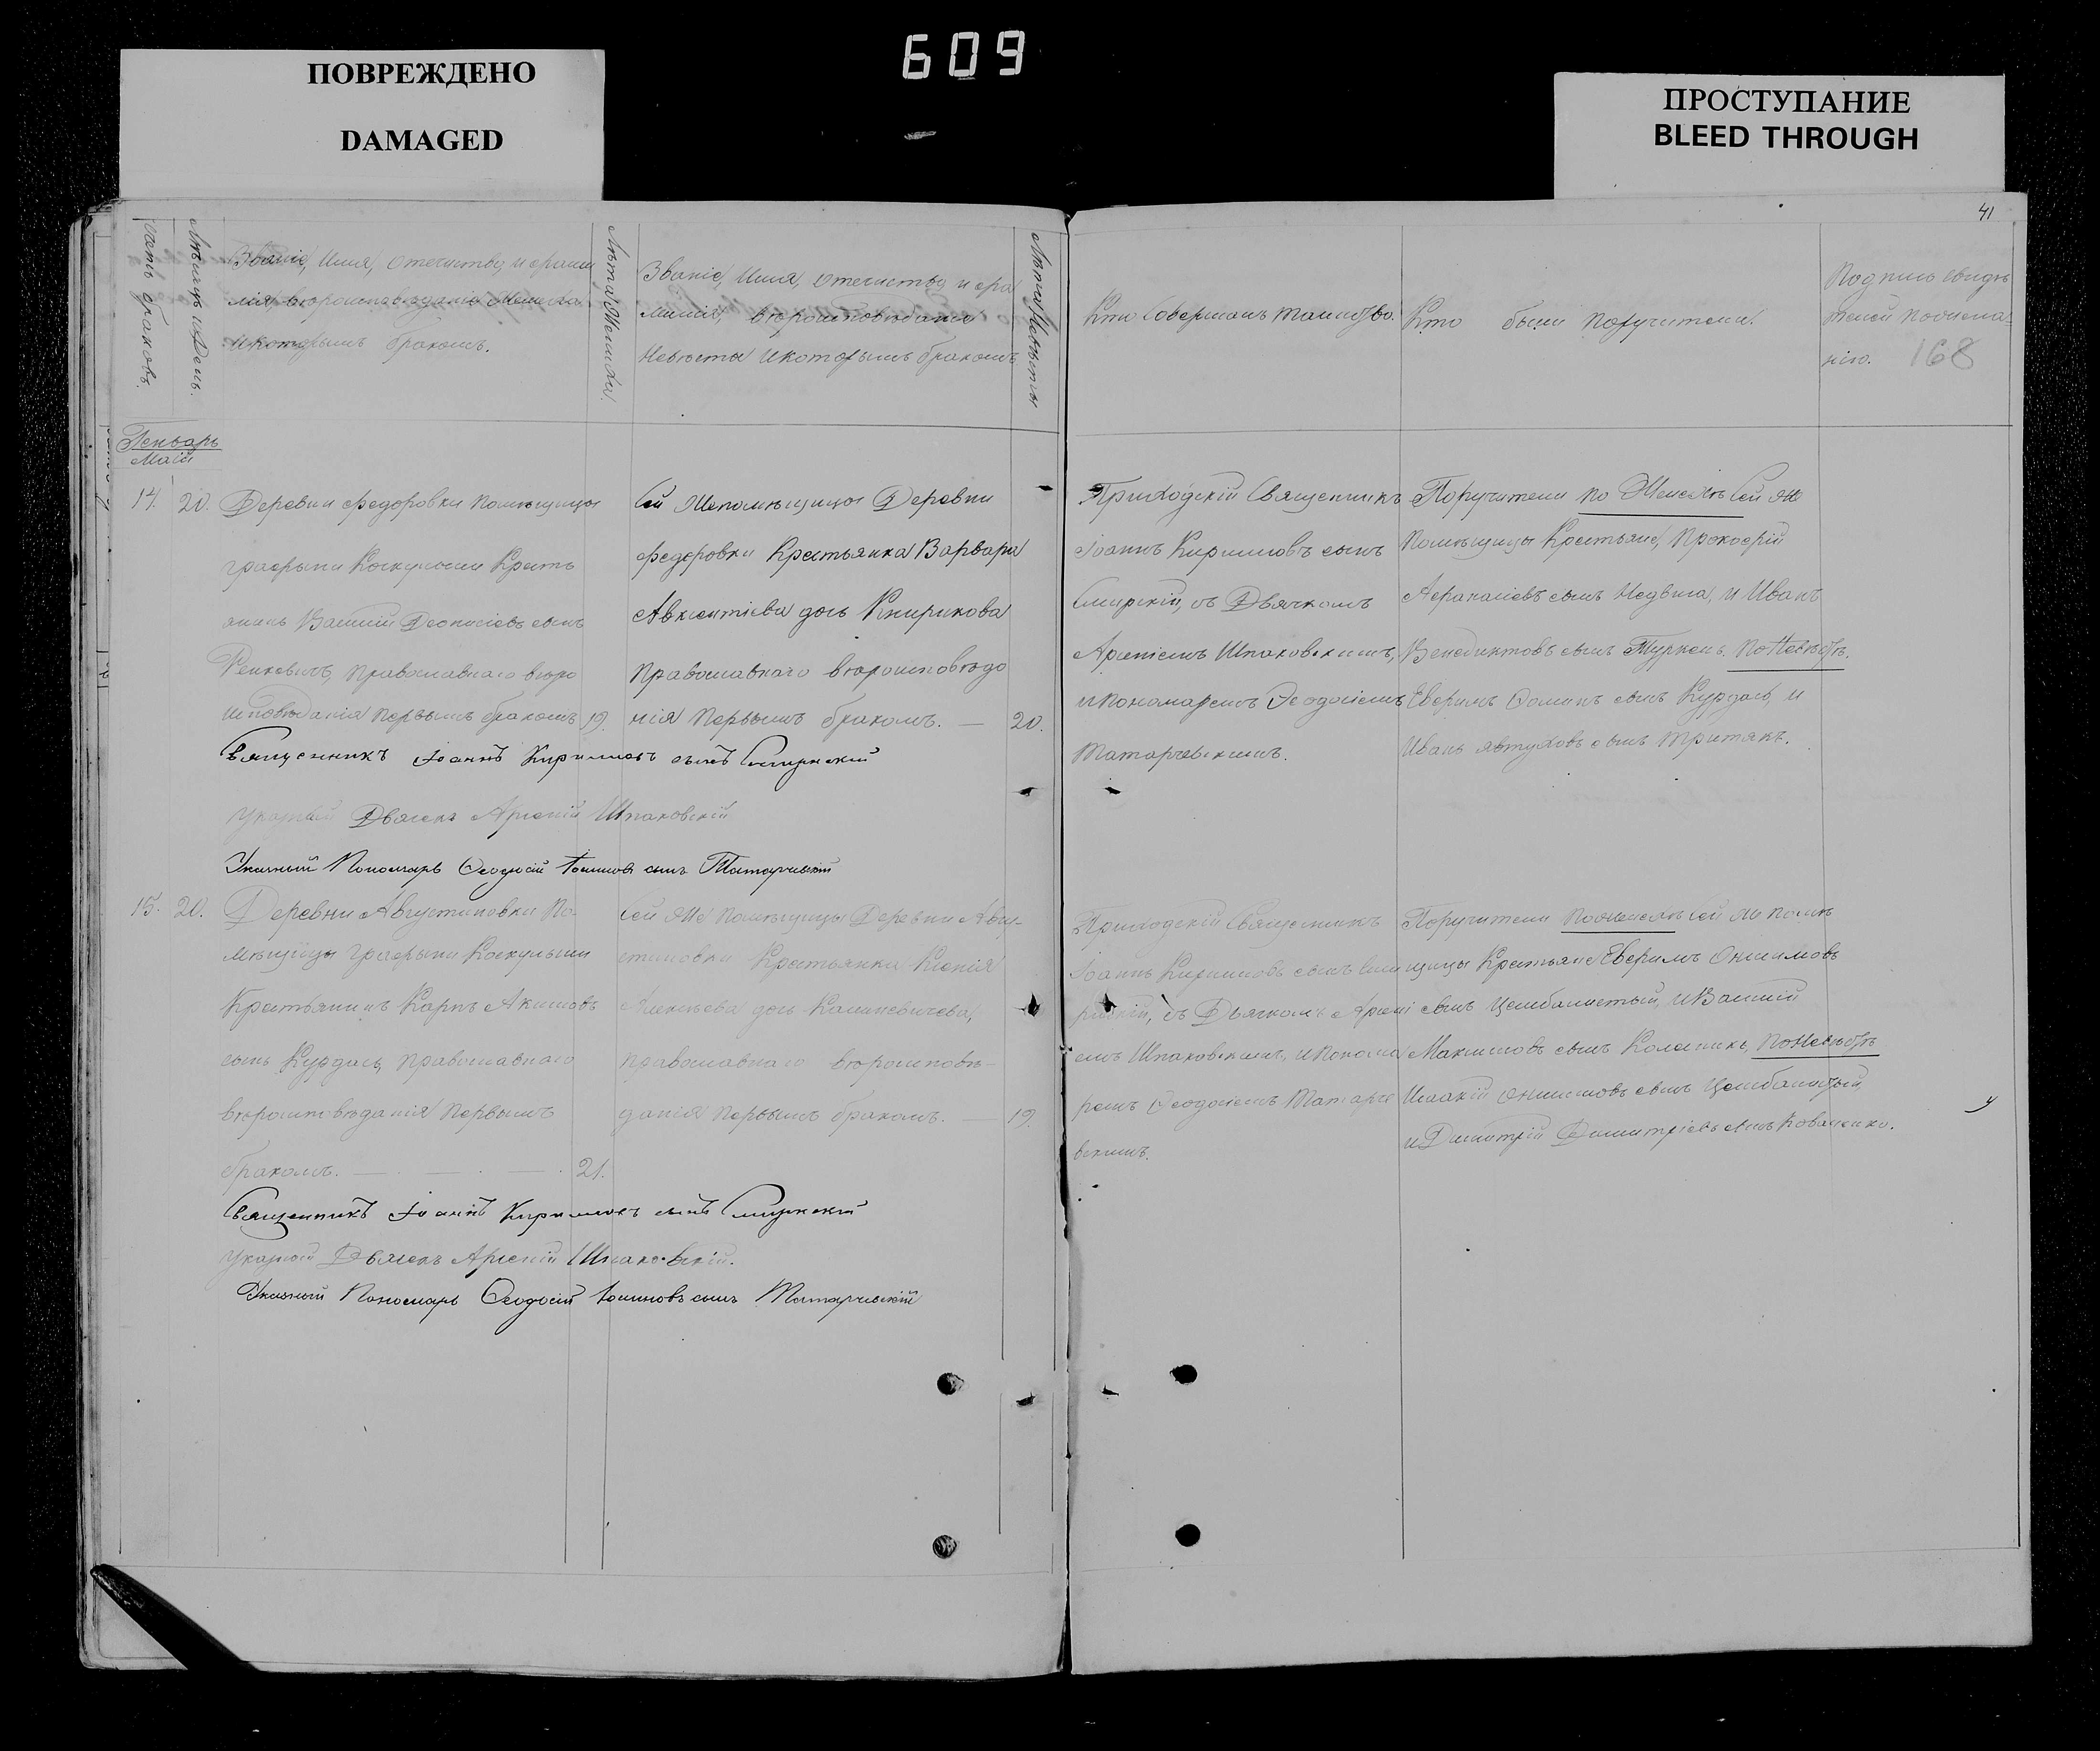 609
ПОВРЕЖДЕНО
DAMAGED
ПРОСТУПАНИЕ
BLEED THROUGH
41
168
счетъ браковъ.
Мѣсяцъ и День.
Званіе, Имя, Отечество, и фами
лія, вѣроисповѣданіе Жениха
и которымъ бракомъ.
Лѣта Жениха.
Званіе, Имя, Отечество и фа
милія, вѣроисповѣданіе
Невѣсты и которымъ бракомъ
Лѣта Невѣсты
Кто совершалъ таинство.
Кто были поручители.
Подпись свидѣ
телей по
нію.
Генварь
Маій
14. 20.
Деревни Федоровки помѣщицы
графыни Крестъ
янинъ Василій Деонисіевъ сынъ
православнаго вѣро
исповѣданія первымъ бракомъ 19.
Сей же помѣщицы Деревни
Федоровки Крестьянка Варвара
Авксентіева дочь Книрикова
православнаго вѣроисповѣда
нія первымъ бракомъ. — 20.
Приходскій Священникъ
Іоаннъ Кирилловъ сынъ
Смирнскій, съ Дьячкомъ
Арсеніемъ Шпаковскимъ,
и пономаремъ Ѳеодосіемъ
Татарчевскимъ.
Поручители по Женихѣ сей же
помѣщицы Крестьяне, Прокофій
Афанасіевъ сынъ Недвига, и Иванъ
Венедиктовъ сынъ По Невѣстѣ.
Евфимъ Фоминъ сынъ Курдась, и
Иванъ Явтуховъ сынъ Притякъ.
Священникъ Іоаннъ Кирилловъ сынъ Смирнскій
указный Дьячекъ Арсеній Шпаковскій
Указный Пономарь Ѳеодосій сынъ Татарчевскій
15. 20.
Деревни Августиновки По
мѣщицы графыни
Крестьянинъ Карпъ Акимовъ
сынъ Курдась, православнаго
вѣроисповѣданія первымъ
бракомъ. — . — . — . 21.
Сей же помѣщицы Деревни Авгу-
стиновки Крестьянка Ксенія
Алексѣева дочь Калиневичева,
православнаго вѣроисповѣ-
данія первымъ бракомъ. — 19.
Приходскій Священникъ
Іоаннъ Кирилловъ сынъ Сми
рнскій, съ Дьячкомъ Арсені
емъ Шпаковскимъ, и понома
ремъ Ѳеодосіемъ Татарче
вскимъ.
Поручители по Женихѣ сей же помѣ
щицы Крестьяне Евфимъ Онисимовъ
сынъ Цембалистый, и Василій
Максимовъ сынъ Колесникъ, по Невѣстѣ
Исаакій Онисимовъ сынъ Цембалистый,
и Димитрій Димитріевъ сынъ Коваленко.
Священникъ Іоаннъ Кирилловъ сынъ Смирнскій
указной Дьячекъ Арсеній Шпаковскій.
Указный Пономарь Ѳеодосій сынъ Татарчевскій